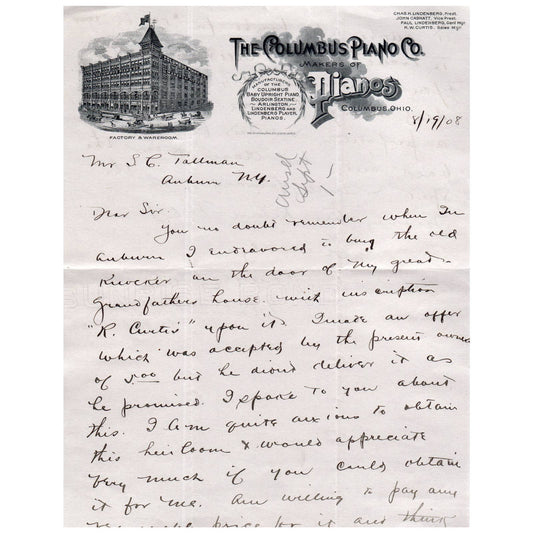 CHAS. H. LINDENBERG, Prest.
JOHN CASHATT, Vice Prest.
PAUL LINDENBERG, Treas.
R. W. CURTIS, Sales Mgr.
THE COLUMBUS PIANO CO.
MAKERS OF
Pianos
COLUMBUS, OHIO.
MANUFACTURERS
OF THE
COLUMBUS
BABY UPRIGHT PIANO
BOUDOIR SEXTINE
ARLINGTON
LINDENBERG AND
LINDENBERG PLAYER
PIANOS.
FACTORY & WAREROOM.
8/19/08
Mr S. C. Tallman
Auburn N.Y.
Ansd
Sept
1-
Dear Sir.
You no doubt remember when In
Auburn I endeavored to buy the old
Knocker on the door of My great-
Grandfathers house. with inscription
"R. Curtis" upon it I made an offer
which was accepted by the present owner
of 5.00 but he didnt deliver it as
he promised. I spoke to you about
this. I am quite anxious to obtain
this heirloom & would appreciate
very much if you could obtain
it for me. Am willing to pay any
price for it and think